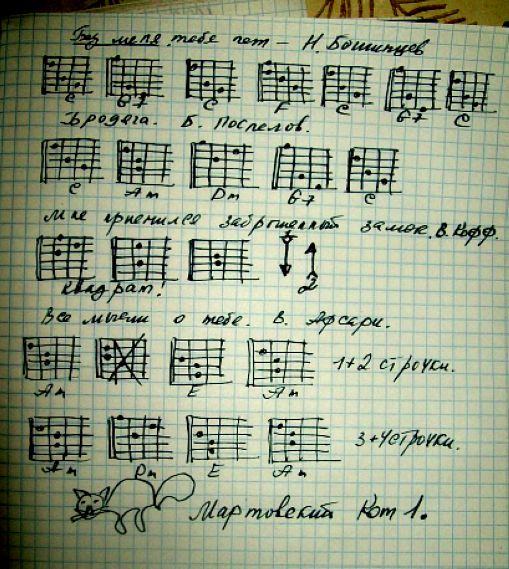 Без меня тебе нет - Н. Башинцев
C G7 C F C G7 C
Бродяга. Б. Поспелов.
C Am Dm G7 C
Мне приснился заброшенный замок. В. Кофф.
2
квадрат!
Все мысли о тебе. В. Афсари.
Am E Am 1+2 строчки.
Am Dm E Am 3+4 строчки.
Мартовский Кот 1.